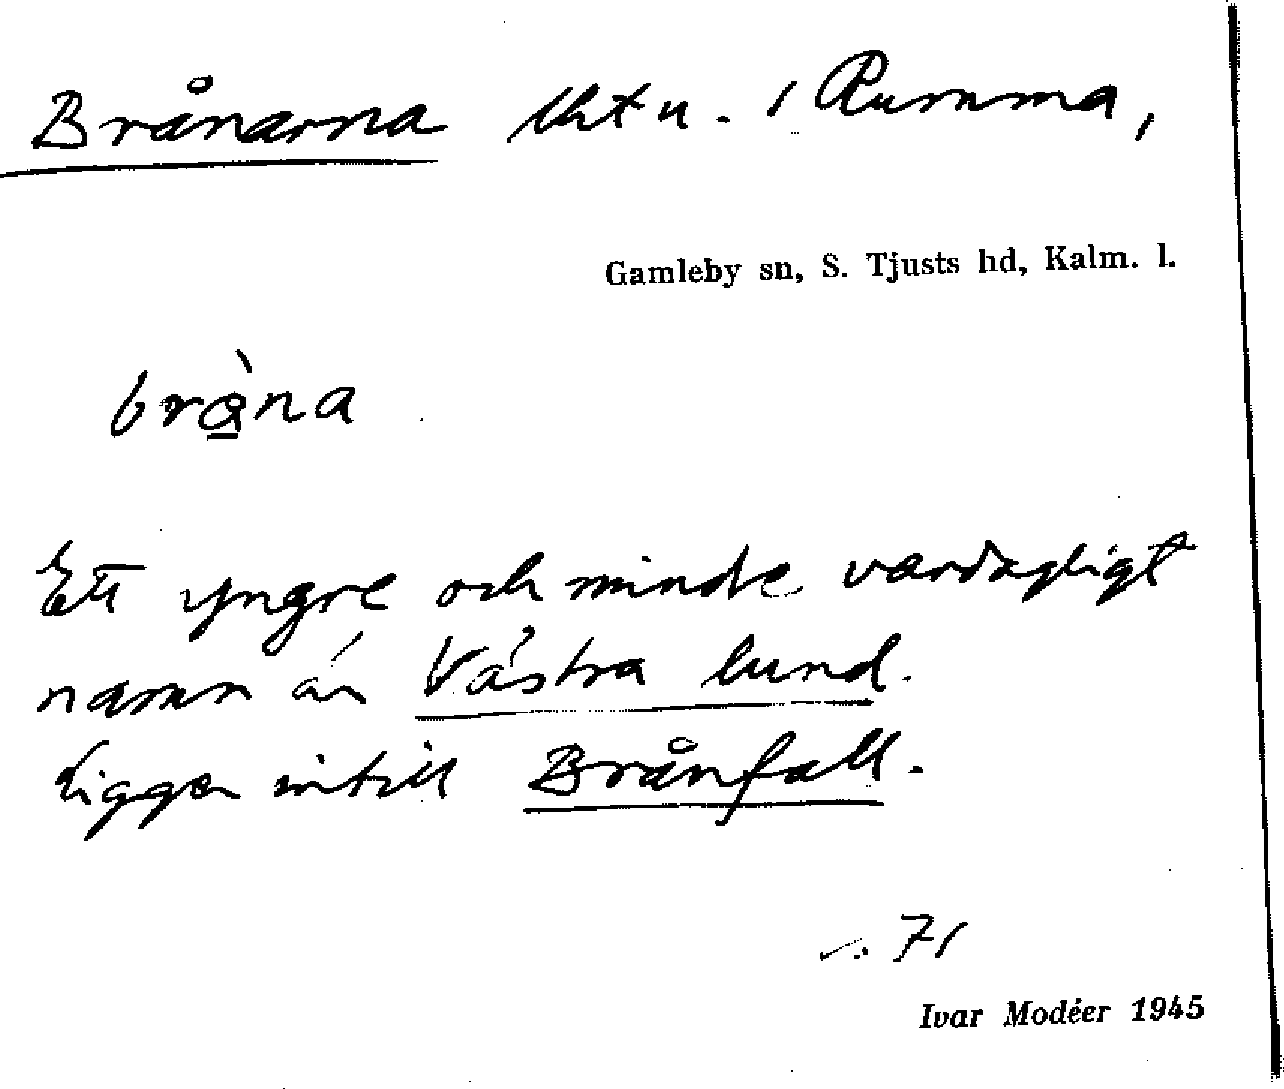 Brånarna i Rumma,
Gamleby sn, S. Tjusts hd, Kalm. l.
Ett yngre och mindre vardagligt
namn än Västra lund.
Ligger intill Brånfall.
71
Ivar Modéer 1945